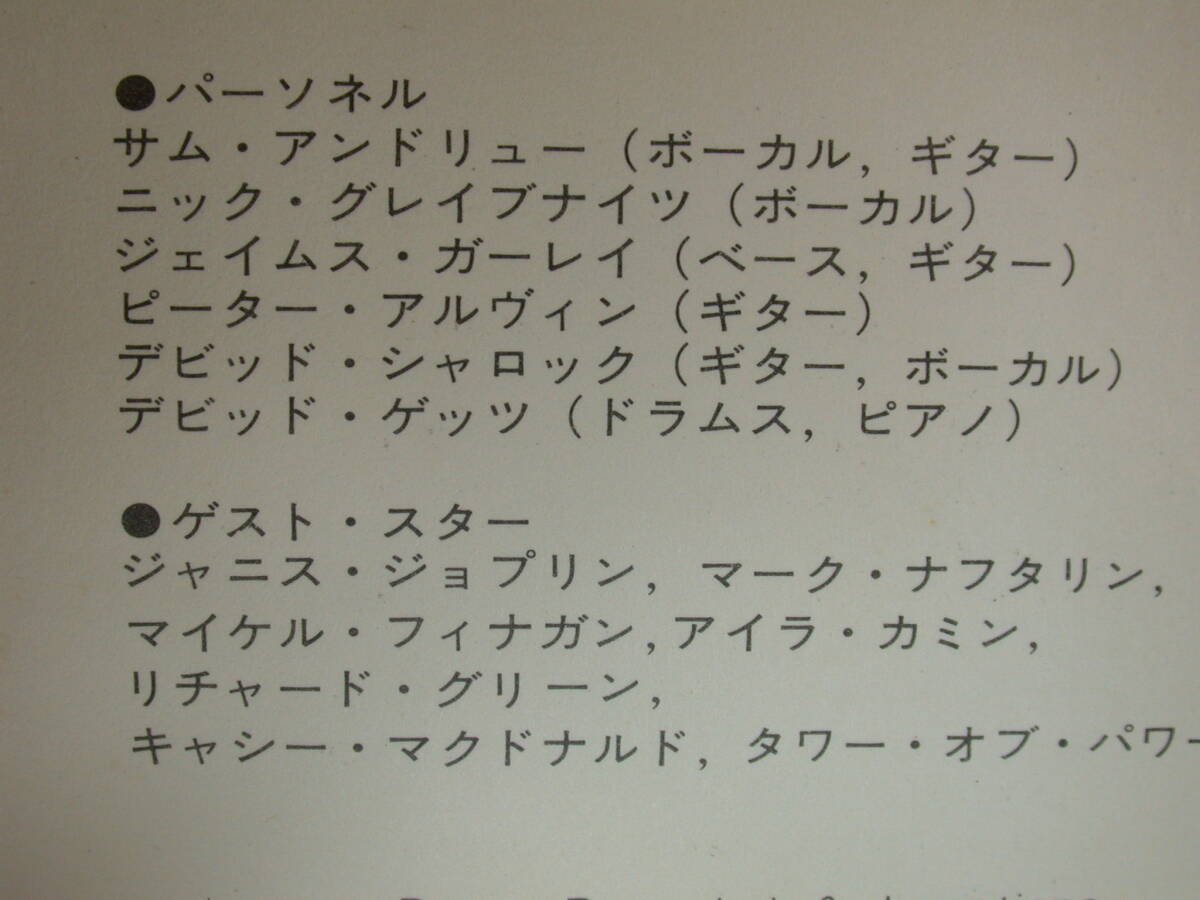 ●パーソネル
サム・アンドリュー（ボーカル，ギター）
ニック・グレイブナイツ（ボーカル）
ジェイムス・ガーレイ（ベース，ギター）
ピーター・アルヴィン（ギター）
デビッド・シャロック（ギター，ボーカル）
デビッド・ゲッツ（ドラムス，ピアノ）
●ゲスト・スター
ジャニス・ジョプリン，マーク・ナフタリン，
マイケル・フィナガン，アイラ・カミン，
リチャード・グリーン，
キャシー・マクドナルド，タワー・オブ・パワー